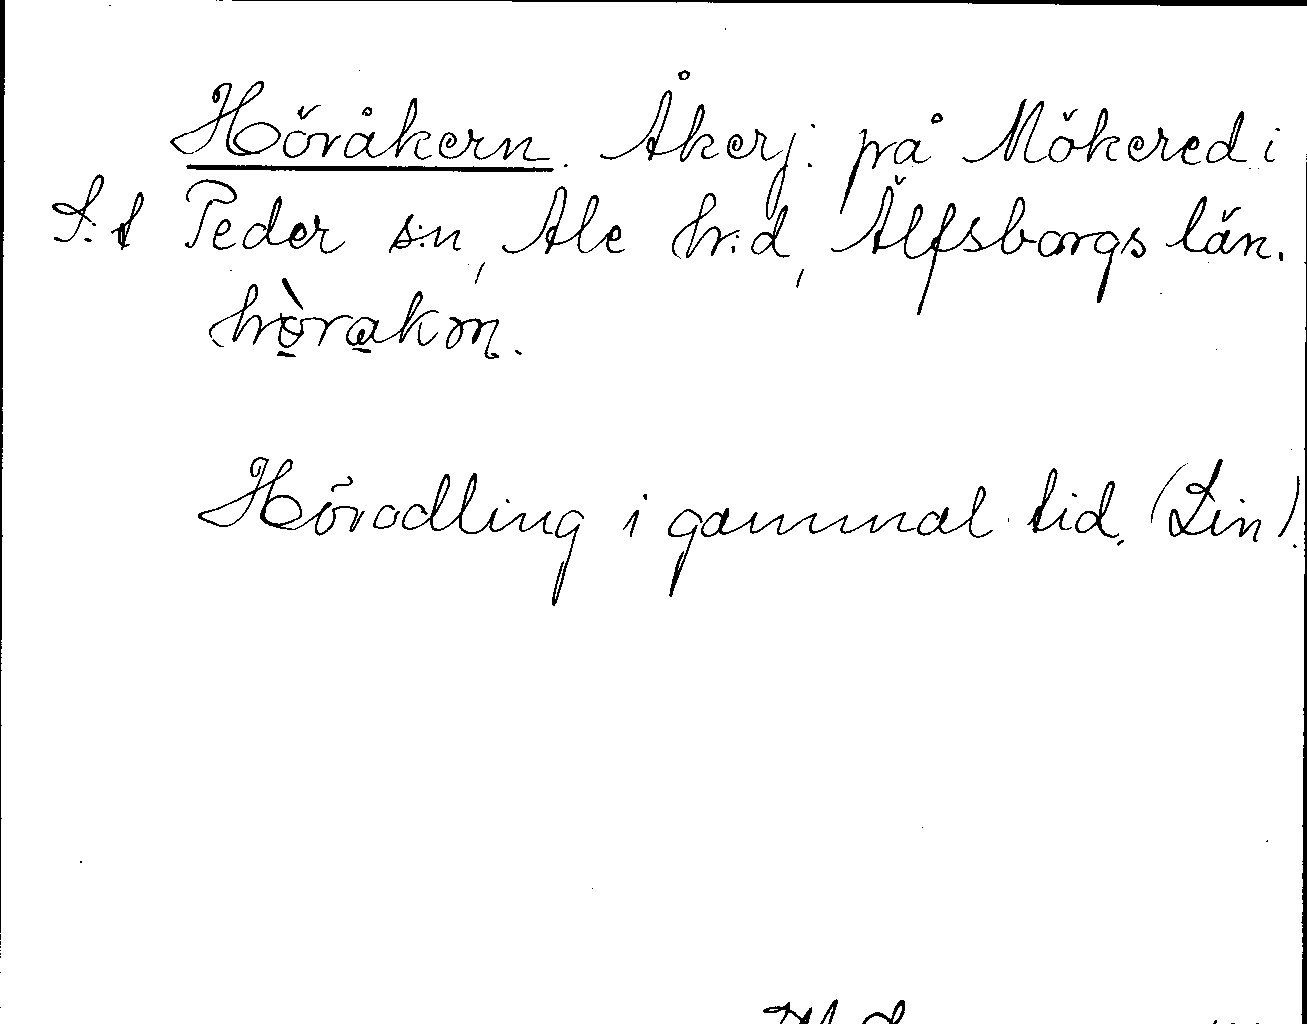 Höråkern. Åkerj. på Mökered i
S:t Peder s:n, Ale h:d, Älfsborgs län.
hò̤ra̲kɷn.
Hörodling i gammal tid. (Lin).